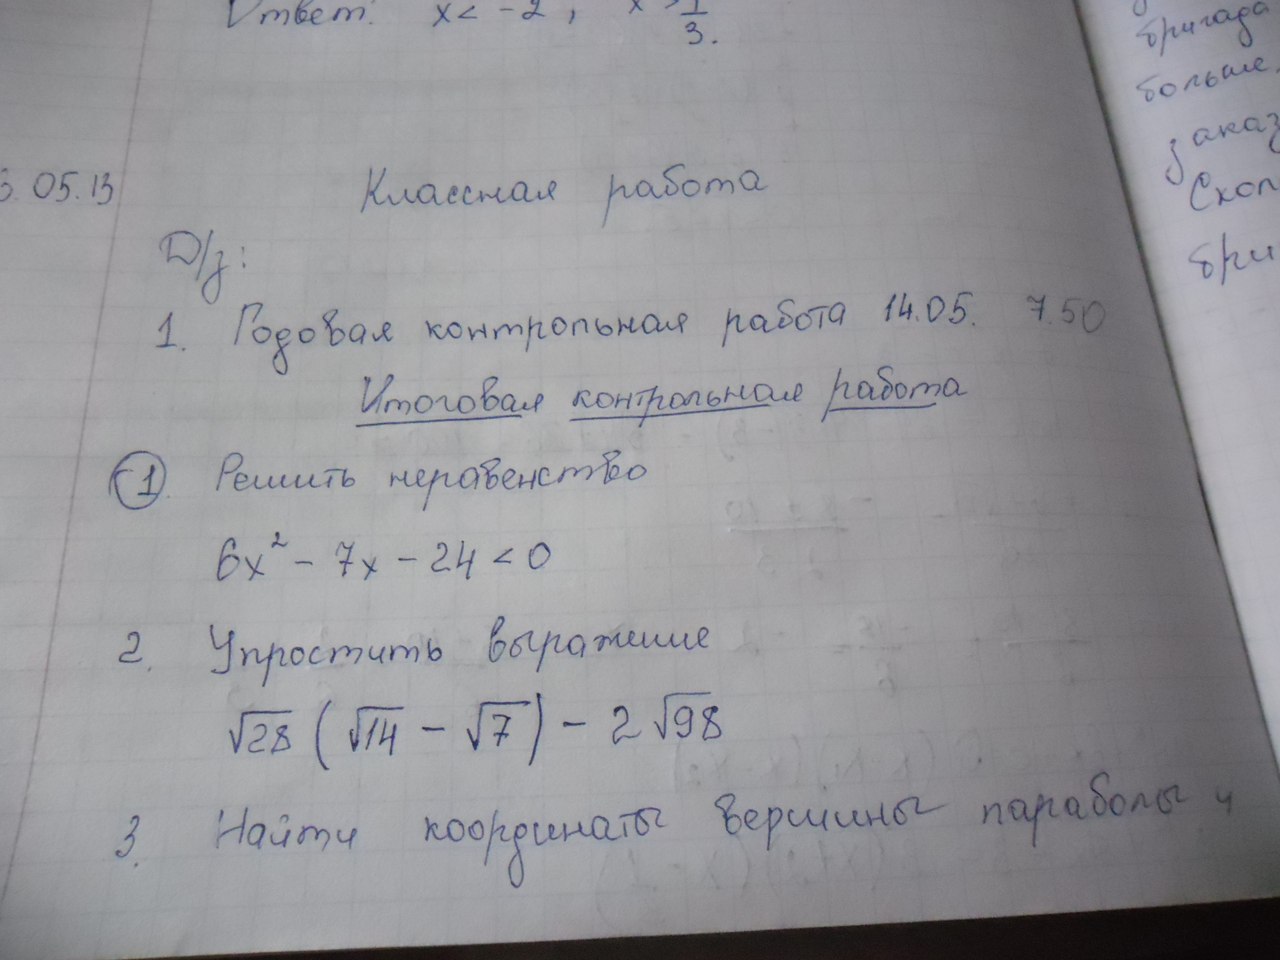 Ответ: x < -2, x > 1/3.
.05.13 Классная работа
Д/з:
1. Годовая контрольная работа 14.05. 7.50
Итоговая контрольная работа
1. Решить неравенство
6x² - 7x - 24 < 0
2. Упростить выражение
√28 (√14 - √7) - 2√98
3. Найти координаты вершины параболы и
бригада
больше.
заказ
бри